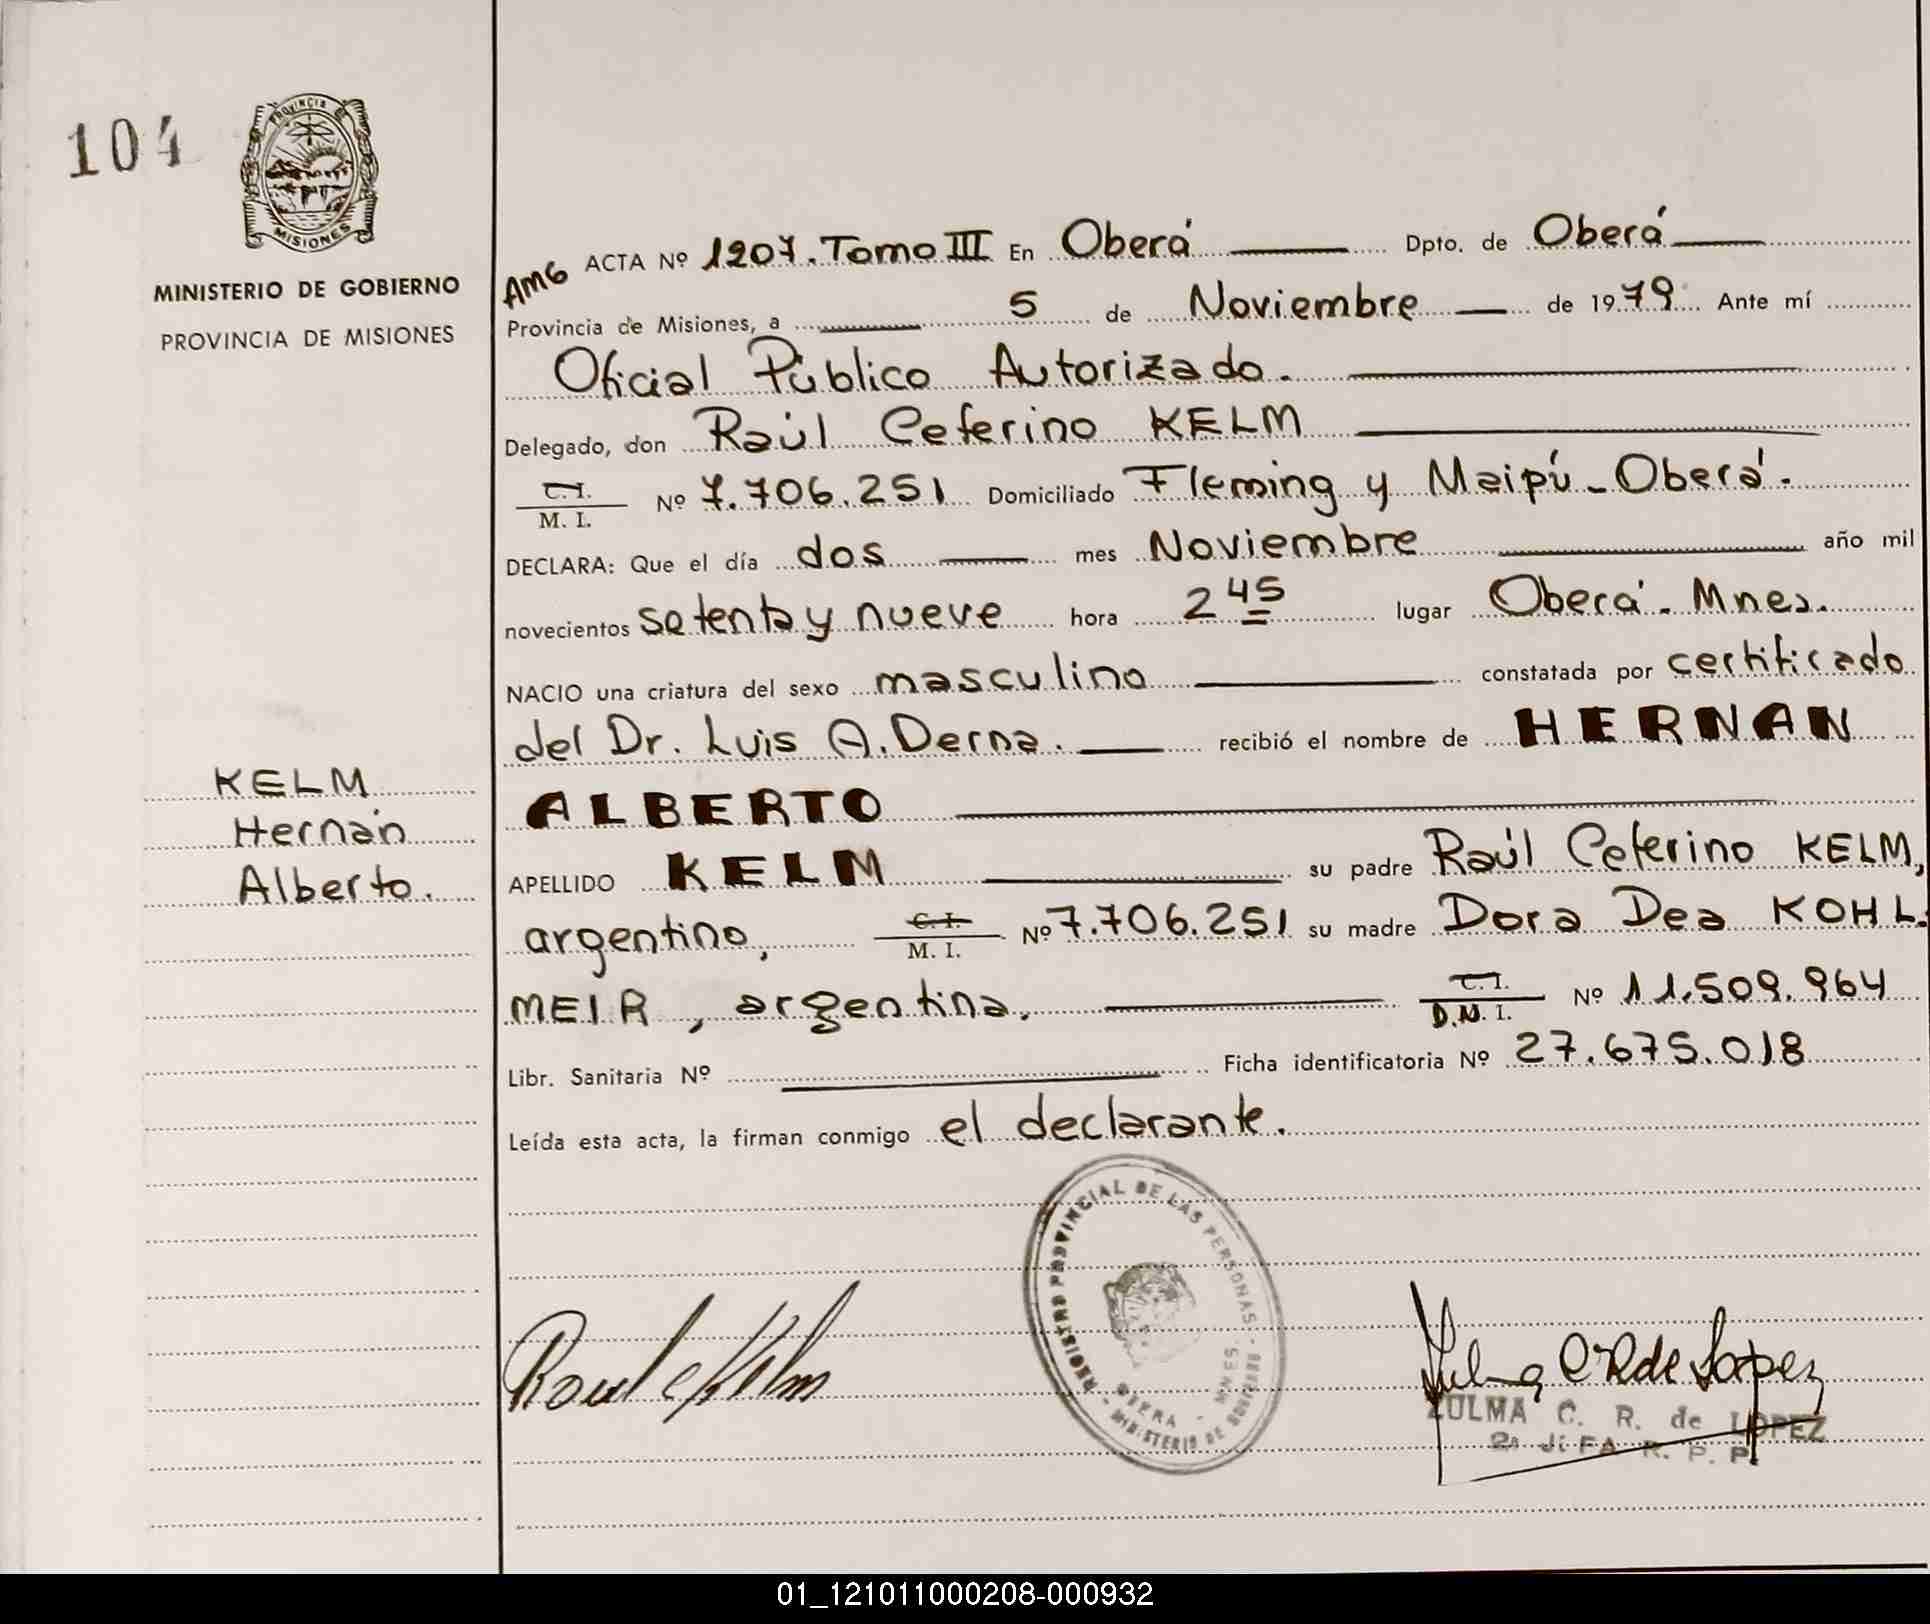 104
PROVINCIA DE
MISIONES
MINISTERIO DE GOBIERNO
PROVINCIA DE MISIONES
KELM
Hernán
Alberto.
AMG ACTA Nº 1207. Tomo III En Oberá Dpto. de Oberá
Provincia de Misiones, a 5 de Noviembre de 1979 Ante mí
Oficial Público Autorizado.
Delegado, don Raúl Ceferino KELM
C.I. / M. I. Nº 7.706.251 Domiciliado Fleming y Maipú - Oberá.
DECLARA: Que el día dos mes Noviembre año mil
novecientos setenta y nueve hora 2 45 lugar Oberá. Mnes.
NACIO una criatura del sexo masculino constatada por certificado
del Dr. Luis A. Derna. recibió el nombre de HERNAN
ALBERTO
APELLIDO KELM su padre Raúl Ceferino KELM,
argentino, C. I. / M. I. Nº 7.706.251 su madre Dora Dea KOHL-
MEIR, argentina, C.I. / D.N. I. Nº 11.509.964
Libr. Sanitaria Nº Ficha identificatoria Nº 27.675.018
Leída esta acta, la firman conmigo el declarante.
REGISTRO PROVINCIAL DE LAS PERSONAS -
OBERA - MNES.
- MINISTERIO DE GOBIERNO
Raul c Kelm
Zulma C R de Lopez
ZULMA C. R. de LOPEZ
2a JEFA R. P. P.
01_121011000208-000932